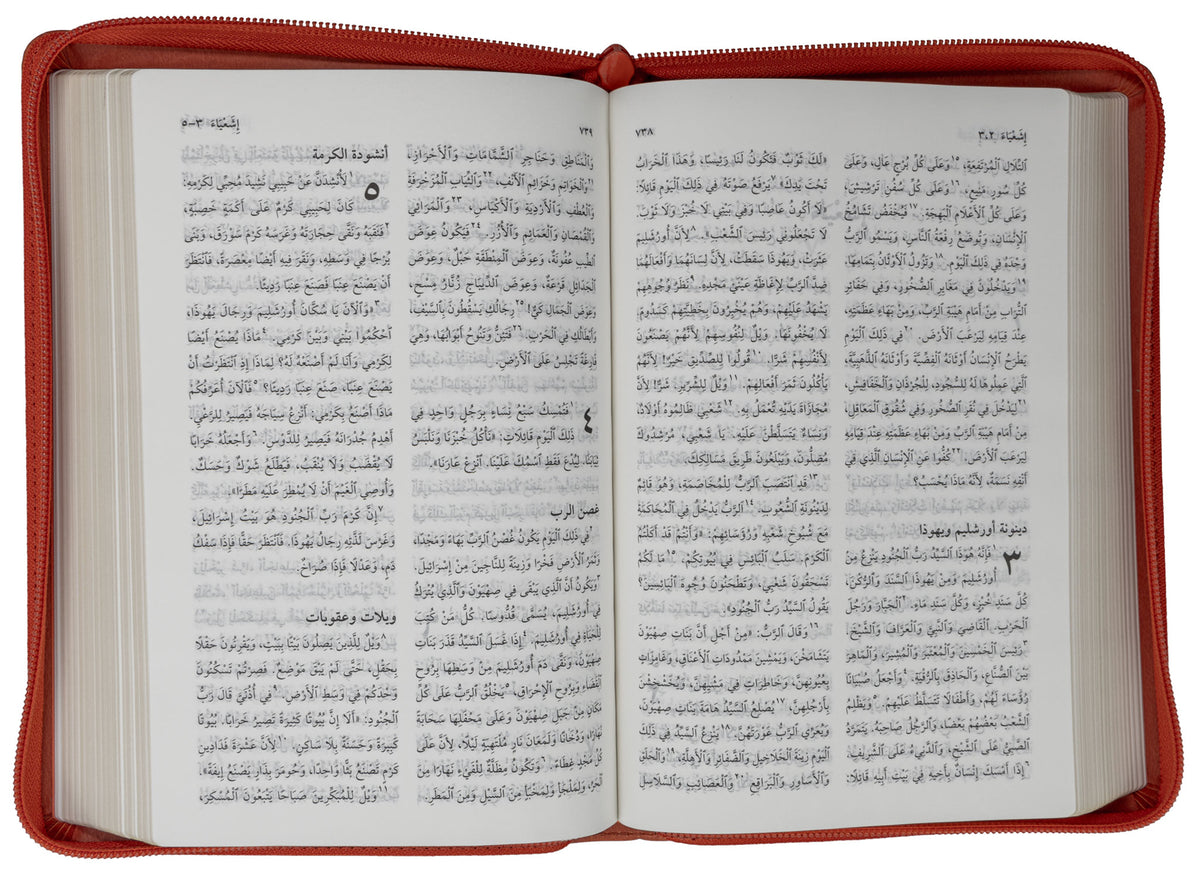 إِشَعْيَاءَ ٢، ٣
٧٣٨
ٱلتِّلَالِ ٱلْمُرْتَفِعَةِ، ١٥وَعَلَى كُلِّ بُرْجٍ عَالٍ، وَعَلَى
كُلِّ سُورٍ مَنِيعٍ، ١٦وَعَلَى كُلِّ سُفُنِ تَرْشِيشَ،
وَعَلَى كُلِّ ٱلْأَعْلَامِ ٱلْبَهِجَةِ. ١٧فَيُخْفَضُ تَشَامُخُ
ٱلْإِنْسَانِ، وَتُوضَعُ رِفْعَةُ ٱلنَّاسِ، وَيَسْمُو ٱلرَّبُّ
وَحْدَهُ فِي ذَلِكَ ٱلْيَوْمِ. ١٨وَتَزُولُ ٱلْأَوْثَانُ بِتَمَامِهَا.
١٩وَيَدْخُلُونَ فِي مَغَايِرِ ٱلصُّخُورِ، وَفِي حَفَائِرِ
ٱلتُّرَابِ مِنْ أَمَامِ هَيْبَةِ ٱلرَّبِّ، وَمِنْ بَهَاءِ عَظَمَتِهِ،
عِنْدَ قِيَامِهِ لِيَرْعَبَ ٱلْأَرْضَ. ٢٠فِي ذَلِكَ ٱلْيَوْمِ
يَطْرَحُ ٱلْإِنْسَانُ أَوْثَانَهُ ٱلْفِضِّيَّةَ وَأَوْثَانَهُ ٱلذَّهَبِيَّةَ،
ٱلَّتِي عَمِلُوهَا لَهُ لِلسُّجُودِ، لِلْجُرْذَانِ وَٱلْخَفَافِيشِ،
٢١لِيَدْخُلَ فِي نُقَرِ ٱلصُّخُورِ وَفِي شُقُوقِ ٱلْمَعَاقِلِ،
مِنْ أَمَامِ هَيْبَةِ ٱلرَّبِّ وَمِنْ بَهَاءِ عَظَمَتِهِ عِنْدَ قِيَامِهِ
لِيَرْعَبَ ٱلْأَرْضَ. ٢٢كُفُّوا عَنِ ٱلْإِنْسَانِ ٱلَّذِي فِي
أَنْفِهِ نَسَمَةٌ، لِأَنَّهُ مَاذَا يُحْسَبُ؟
دينونة أورشليم ويهوذا
٣ ١فَإِنَّهُ هُوَذَا ٱلسَّيِّدُ رَبُّ ٱلْجُنُودِ يَنْزِعُ مِنْ
أُورُشَلِيمَ وَمِنْ يَهُوذَا ٱلسَّنَدَ وَٱلرُّكْنَ،
كُلَّ سَنَدِ خُبْزٍ، وَكُلَّ سَنَدِ مَاءٍ. ٢ٱلْجَبَّارَ وَرَجُلَ
ٱلْحَرْبِ. ٱلْقَاضِيَ وَٱلنَّبِيَّ وَٱلْعَرَّافَ وَٱلشَّيْخَ.
٣رَئِيسَ ٱلْخَمْسِينَ وَٱلْمُعْتَبَرَ وَٱلْمُشِيرَ، وَٱلْمَاهِرَ
بَيْنَ ٱلصُّنَّاعِ، وَٱلْحَاذِقَ بِٱلرُّقْيَةِ. ٤وَأَجْعَلُ صُبْيَانًا
رُؤَسَاءَ لَهُمْ، وَأَطْفَالًا تَتَسَلَّطُ عَلَيْهِمْ. ٥وَيَظْلِمُ
ٱلشَّعْبُ بَعْضُهُمْ بَعْضًا، وَٱلرَّجُلُ صَاحِبَهُ. يَتَمَرَّدُ
ٱلصَّبِيُّ عَلَى ٱلشَّيْخِ، وَٱلدَّنِيءُ عَلَى ٱلشَّرِيفِ.
٦إِذَا أَمْسَكَ إِنْسَانٌ بِأَخِيهِ فِي بَيْتِ أَبِيهِ قَائِلًا:
«لَكَ ثَوْبٌ فَتَكُونُ لَنَا رَئِيسًا، وَهَذَا ٱلْخَرَابُ
تَحْتَ يَدِكَ» ٧يَرْفَعُ صَوْتَهُ فِي ذَلِكَ ٱلْيَوْمِ قَائِلًا:
«لَا أَكُونُ عَاصِبًا وَفِي بَيْتِي لَا خُبْزَ وَلَا ثَوْبَ.
لَا تَجْعَلُونِي رَئِيسَ ٱلشَّعْبِ». ٨لِأَنَّ أُورُشَلِيمَ
عَثَرَتْ، وَيَهُوذَا سَقَطَتْ، لِأَنَّ لِسَانَهُمَا وَأَفْعَالَهُمَا
ضِدَّ ٱلرَّبِّ لِإِغَاظَةِ عَيْنَيْ مَجْدِهِ. ٩نَظَرُ وُجُوهِهِمْ
يَشْهَدُ عَلَيْهِمْ، وَهُمْ يُخْبِرُونَ بِخَطِيَّتِهِمْ كَسَدُومَ.
لَا يُخْفُونَهَا. وَيْلٌ لِنُفُوسِهِمْ لِأَنَّهُمْ يَصْنَعُونَ
لِأَنْفُسِهِمْ شَرًّا. ١٠قُولُوا لِلصِّدِّيقِ خَيْرٌ! لِأَنَّهُمْ
يَأْكُلُونَ ثَمَرَ أَفْعَالِهِمْ. ١١وَيْلٌ لِلشِّرِّيرِ. شَرٌّ! لِأَنَّ
مُجَازَاةَ يَدَيْهِ تُعْمَلُ بِهِ. ١٢شَعْبِي ظَالِمُوهُ أَوْلَادٌ،
وَنِسَاءٌ يَتَسَلَّطْنَ عَلَيْهِ. يَا شَعْبِي، مُرْشِدُوكَ
مُضِلُّونَ، وَيَبْلَعُونَ طَرِيقَ مَسَالِكِكَ.
١٣قَدِ ٱنْتَصَبَ ٱلرَّبُّ لِلْمُخَاصَمَةِ، وَهُوَ قَائِمٌ
لِدَيْنُونَةِ ٱلشُّعُوبِ. ١٤ٱلرَّبُّ يَدْخُلُ فِي ٱلْمُحَاكَمَةِ
مَعَ شُيُوخِ شَعْبِهِ وَرُؤَسَائِهِمْ: «وَأَنْتُمْ قَدْ أَكَلْتُمُ
ٱلْكَرْمَ. سَلَبُ ٱلْبَائِسِ فِي بُيُوتِكُمْ. ١٥مَا لَكُمْ
تَسْحَقُونَ شَعْبِي، وَتَطْحَنُونَ وُجُوهَ ٱلْبَائِسِينَ؟
يَقُولُ ٱلسَّيِّدُ رَبُّ ٱلْجُنُودِ».
١٦وَقَالَ ٱلرَّبُّ: «مِنْ أَجْلِ أَنَّ بَنَاتِ صِهْيَوْنَ
يَتَشَامَخْنَ، وَيَمْشِينَ مَمْدُودَاتِ ٱلْأَعْنَاقِ، وَغَامِزَاتٍ
بِعُيُونِهِنَّ، وَخَاطِرَاتٍ فِي مَشْيِهِنَّ، وَيُخَشْخِشْنَ
بِأَرْجُلِهِنَّ، ١٧يُصْلِعُ ٱلسَّيِّدُ هَامَةَ بَنَاتِ صِهْيَوْنَ،
وَيُعَرِّي ٱلرَّبُّ عَوْرَتَهُنَّ. ١٨يَنْزِعُ ٱلسَّيِّدُ فِي ذَلِكَ
ٱلْيَوْمِ زِينَةَ ٱلْخَلَاخِيلِ وَٱلضَّفَائِرِ وَٱلْأَهِلَّةِ، ١٩وَٱلْحَلَقِ
وَٱلْأَسَاوِرِ وَٱلْبَرَاقِعِ ٢٠وَٱلْعَصَائِبِ وَٱلسَّلَاسِلِ
٧٣٩
إِشَعْيَاءَ ٣-٥
وَٱلْمَنَاطِقِ وَحَنَاجِرِ ٱلشَّمَّامَاتِ وَٱلْأَحْرَازِ،
٢١وَٱلْخَوَاتِمِ وَخَزَائِمِ ٱلْأَنْفِ، ٢٢وَٱلثِّيَابِ ٱلْمُزَخْرَفَةِ
وَٱلْعُطْفِ وَٱلْأَرْدِيَةِ وَٱلْأَكْيَاسِ، ٢٣وَٱلْمَرَائِي
وَٱلْقُمْصَانِ وَٱلْعَمَائِمِ وَٱلْأُزُرِ. ٢٤فَيَكُونُ عِوَضَ
ٱلطِّيبِ عُفُونَةٌ، وَعِوَضَ ٱلْمِنْطَقَةِ حَبْلٌ، وَعِوَضَ
ٱلْجَدَائِلِ قَرْعَةٌ، وَعِوَضَ ٱلدِّيبَاجِ زُنَّارُ مِسْحٍ،
وَعِوَضَ ٱلْجَمَالِ كَيٌّ! ٢٥رِجَالُكِ يَسْقُطُونَ بِٱلسَّيْفِ،
وَأَبْطَالُكِ فِي ٱلْحَرْبِ. ٢٦فَتَئِنُّ وَتَنُوحُ أَبْوَابُهَا، وَهِيَ
فَارِغَةً تَجْلِسُ عَلَى ٱلْأَرْضِ.
٤ ١فَتُمْسِكُ سَبْعُ نِسَاءٍ بِرَجُلٍ وَاحِدٍ فِي
ذَلِكَ ٱلْيَوْمِ قَائِلَاتٍ: «نَأْكُلُ خُبْزَنَا وَنَلْبَسُ
ثِيَابَنَا. لِيُدْعَ فَقَطِ ٱسْمُكَ عَلَيْنَا. ٱنْزِعْ عَارَنَا».
غصن الرب
٢فِي ذَلِكَ ٱلْيَوْمِ يَكُونُ غُصْنُ ٱلرَّبِّ بَهَاءً وَمَجْدًا،
وَثَمَرُ ٱلْأَرْضِ فَخْرًا وَزِينَةً لِلنَّاجِينَ مِنْ إِسْرَائِيلَ.
٣وَيَكُونُ أَنَّ ٱلَّذِي يَبْقَى فِي صِهْيَوْنَ وَٱلَّذِي يُتْرَكُ
فِي أُورُشَلِيمَ، يُسَمَّى قُدُّوسًا. كُلُّ مَنْ كُتِبَ
لِلْحَيَاةِ فِي أُورُشَلِيمَ. ٤إِذَا غَسَلَ ٱلسَّيِّدُ قَذَرَ بَنَاتِ
صِهْيَوْنَ، وَنَقَّى دَمَ أُورُشَلِيمَ مِنْ وَسَطِهَا بِرُوحِ
ٱلْقَضَاءِ وَبِرُوحِ ٱلْإِحْرَاقِ، ٥يَخْلُقُ ٱلرَّبُّ عَلَى كُلِّ
مَكَانٍ مِنْ جَبَلِ صِهْيَوْنَ وَعَلَى مَحْفَلِهَا سَحَابَةً
نَهَارًا، وَدُخَانًا وَلَمَعَانَ نَارٍ مُلْتَهِبَةٍ لَيْلًا، لِأَنَّ عَلَى
كُلِّ مَجْدٍ غِطَاءً. ٦وَتَكُونُ مِظَلَّةٌ لِلْفَيْءِ نَهَارًا مِنَ
ٱلْحَرِّ، وَلِمَلْجَإٍ وَلِمَخْبَإٍ مِنَ ٱلسَّيْلِ وَمِنَ ٱلْمَطَرِ.
أنشودة الكرمة
٥ ١لَأُنْشِدَنَّ عَنْ حَبِيبِي نَشِيدَ مُحِبِّي لِكَرْمِهِ:
كَانَ لِحَبِيبِي كَرْمٌ عَلَى أَكَمَةٍ خَصِبَةٍ،
٢فَنَقَبَهُ وَنَقَّى حِجَارَتَهُ وَغَرَسَهُ كَرْمَ سَوْرَقَ، وَبَنَى
بُرْجًا فِي وَسَطِهِ، وَنَقَرَ فِيهِ أَيْضًا مِعْصَرَةً، فَٱنْتَظَرَ
أَنْ يَصْنَعَ عِنَبًا فَصَنَعَ عِنَبًا رَدِيئًا.
٣«وَٱلْآنَ يَا سُكَّانَ أُورُشَلِيمَ وَرِجَالَ يَهُوذَا،
ٱحْكُمُوا بَيْنِي وَبَيْنَ كَرْمِي. ٤مَاذَا يُصْنَعُ أَيْضًا
لِكَرْمِي وَأَنَا لَمْ أَصْنَعْهُ لَهُ؟ لِمَاذَا إِذِ ٱنْتَظَرْتُ أَنْ
يَصْنَعَ عِنَبًا، صَنَعَ عِنَبًا رَدِيئًا؟ ٥فَٱلْآنَ أُعَرِّفُكُمْ
مَاذَا أَصْنَعُ بِكَرْمِي: أَنْزِعُ سِيَاجَهُ فَيَصِيرُ لِلرَّعْيِ.
أَهْدِمُ جُدْرَانَهُ فَيَصِيرُ لِلدَّوْسِ. ٦وَأَجْعَلُهُ خَرَابًا
لَا يُقْضَبُ وَلَا يُنْقَبُ، فَيَطْلَعُ شَوْكٌ وَحَسَكٌ.
وَأُوصِي ٱلْغَيْمَ أَنْ لَا يُمْطِرَ عَلَيْهِ مَطَرًا».
٧إِنَّ كَرْمَ رَبِّ ٱلْجُنُودِ هُوَ بَيْتُ إِسْرَائِيلَ،
وَغَرْسَ لَذَّتِهِ رِجَالُ يَهُوذَا. فَٱنْتَظَرَ حَقًّا فَإِذَا سَفْكُ
دَمٍ، وَعَدْلًا فَإِذَا صُرَاخٌ.
ويلات وعقوبات
٨وَيْلٌ لِلَّذِينَ يَصِلُونَ بَيْتًا بِبَيْتٍ، وَيَقْرِنُونَ حَقْلًا
بِحَقْلٍ، حَتَّى لَمْ يَبْقَ مَوْضِعٌ. فَصِرْتُمْ تَسْكُنُونَ
وَحْدَكُمْ فِي وَسَطِ ٱلْأَرْضِ. ٩فِي أُذُنَيَّ قَالَ رَبُّ
ٱلْجُنُودِ: «أَلَا إِنَّ بُيُوتًا كَثِيرَةً تَصِيرُ خَرَابًا. بُيُوتًا
كَبِيرَةً وَحَسَنَةً بِلَا سَاكِنٍ. ١٠لِأَنَّ عَشَرَةَ فَدَادِينِ
كَرْمٍ تَصْنَعُ بَثًّا وَاحِدًا، وَحُومَرَ بِذَارٍ يَصْنَعُ إِيفَةً».
١١وَيْلٌ لِلْمُبَكِّرِينَ صَبَاحًا يَتْبَعُونَ ٱلْمُسْكِرَ،